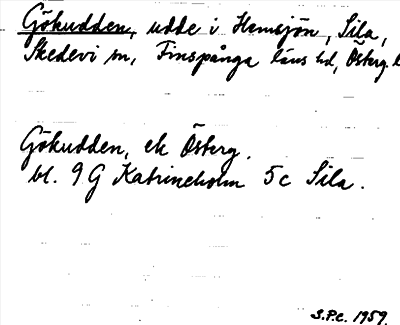 Gökudden, udde i Hemsjön, Sila,
Skedevi sn, Finspånga läns hd, Österg. l
Gökudden, ek Österg.
bl. 9 G Katrineholm 5 c Sila.
S.P.C. 1959.